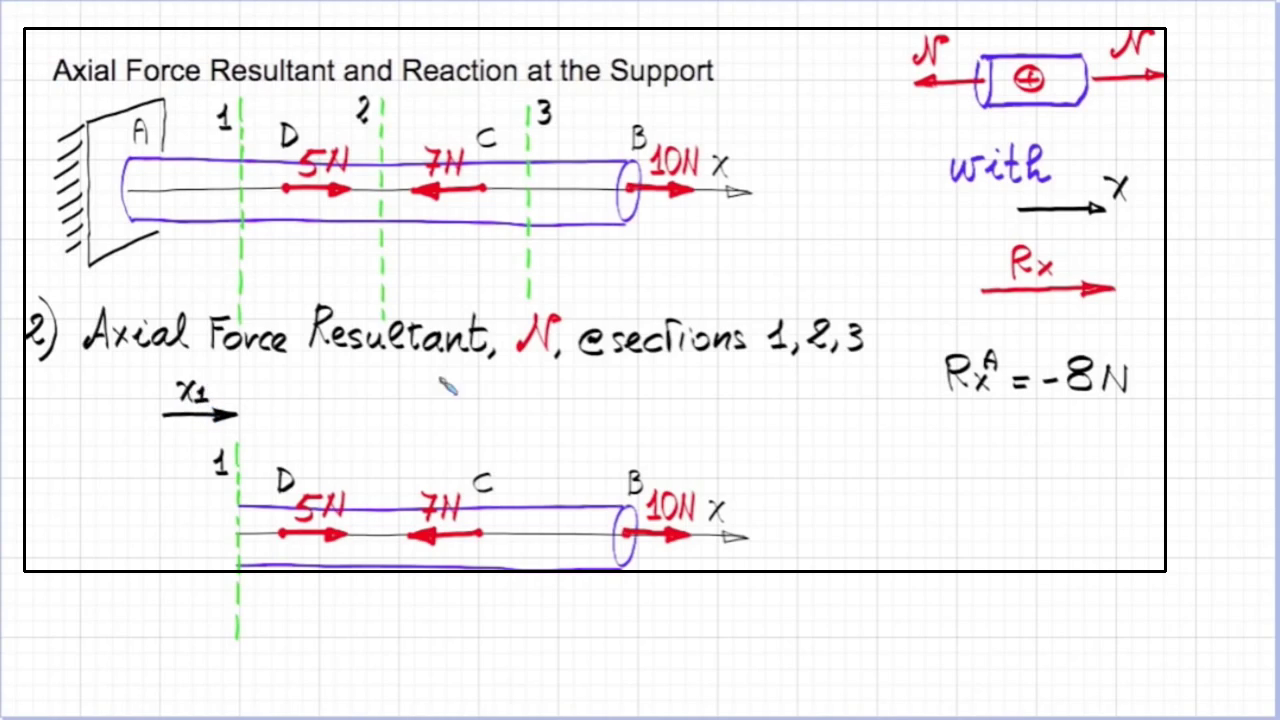 Axial Force Resultant and Reaction at the Support
N + N
A 1 D 5N 2 7N C 3 B 10N x
with
x
Rx
2) Axial Force Resultant, N, @sections 1,2,3
RxA = -8N
x1
1 D 5N 7N C B 10N x